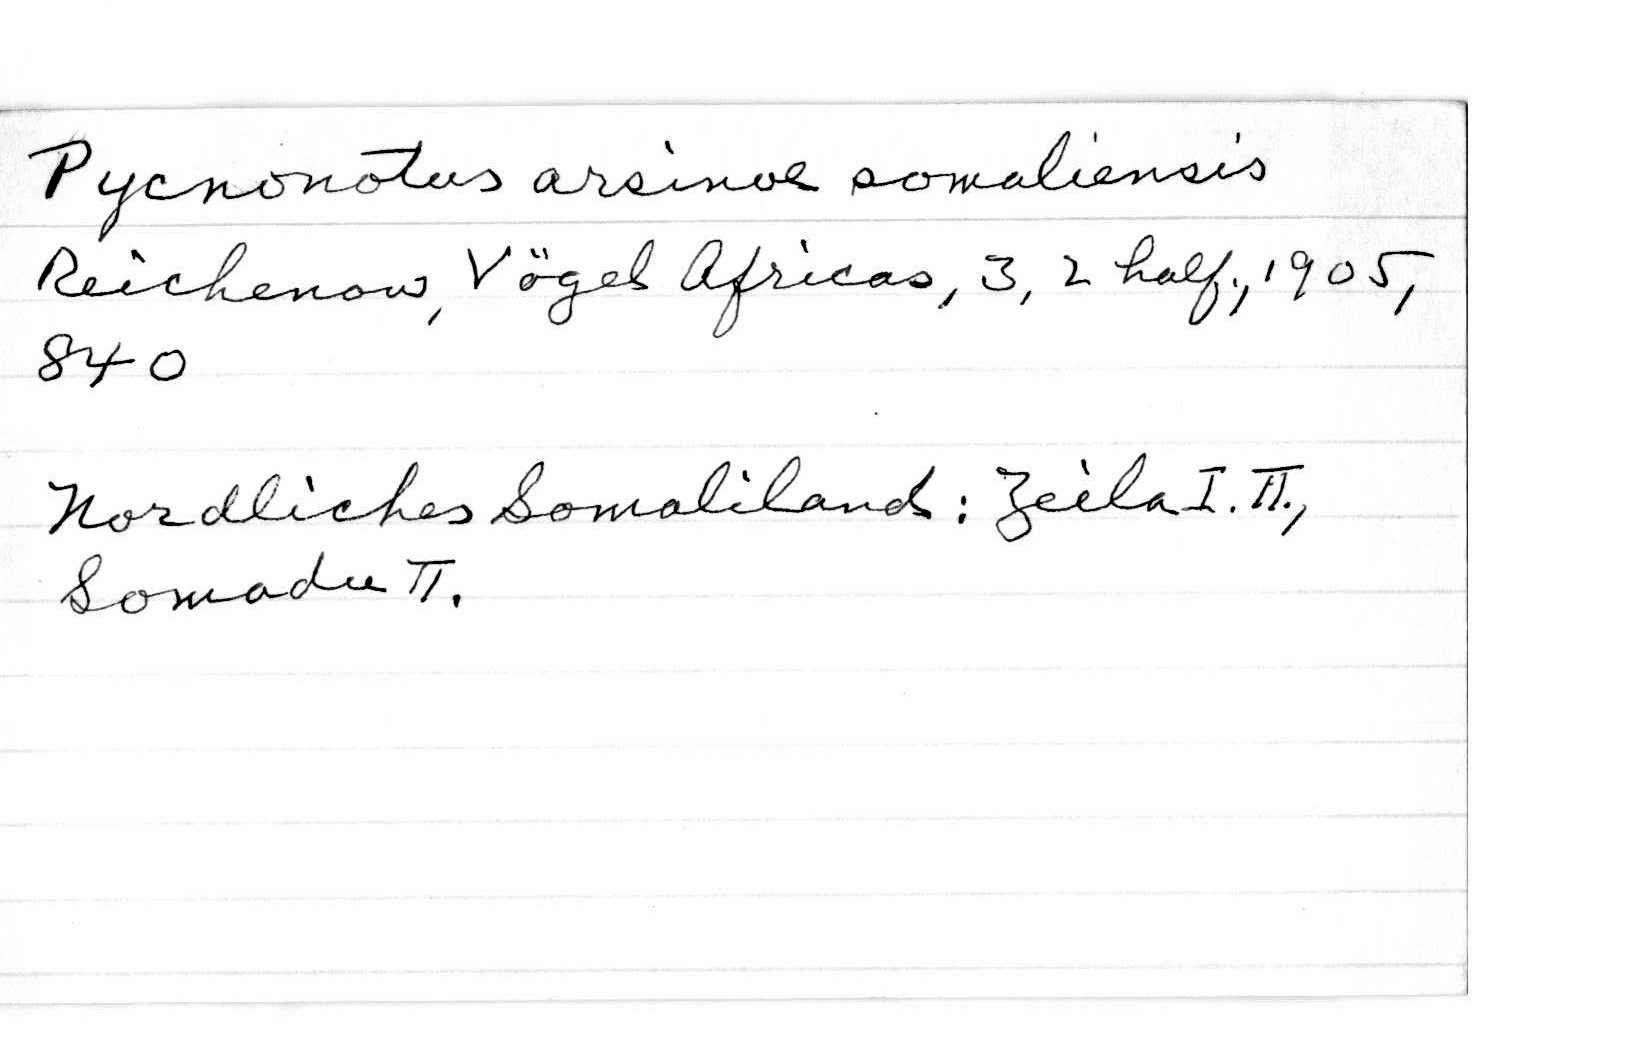 Pycnonotus arsinoe somaliensis
Reichenow, Vögel Africas, 3, 2 half., 1905,
840
Nordliches Somaliland: Zeila I. II.,
Somadu II.